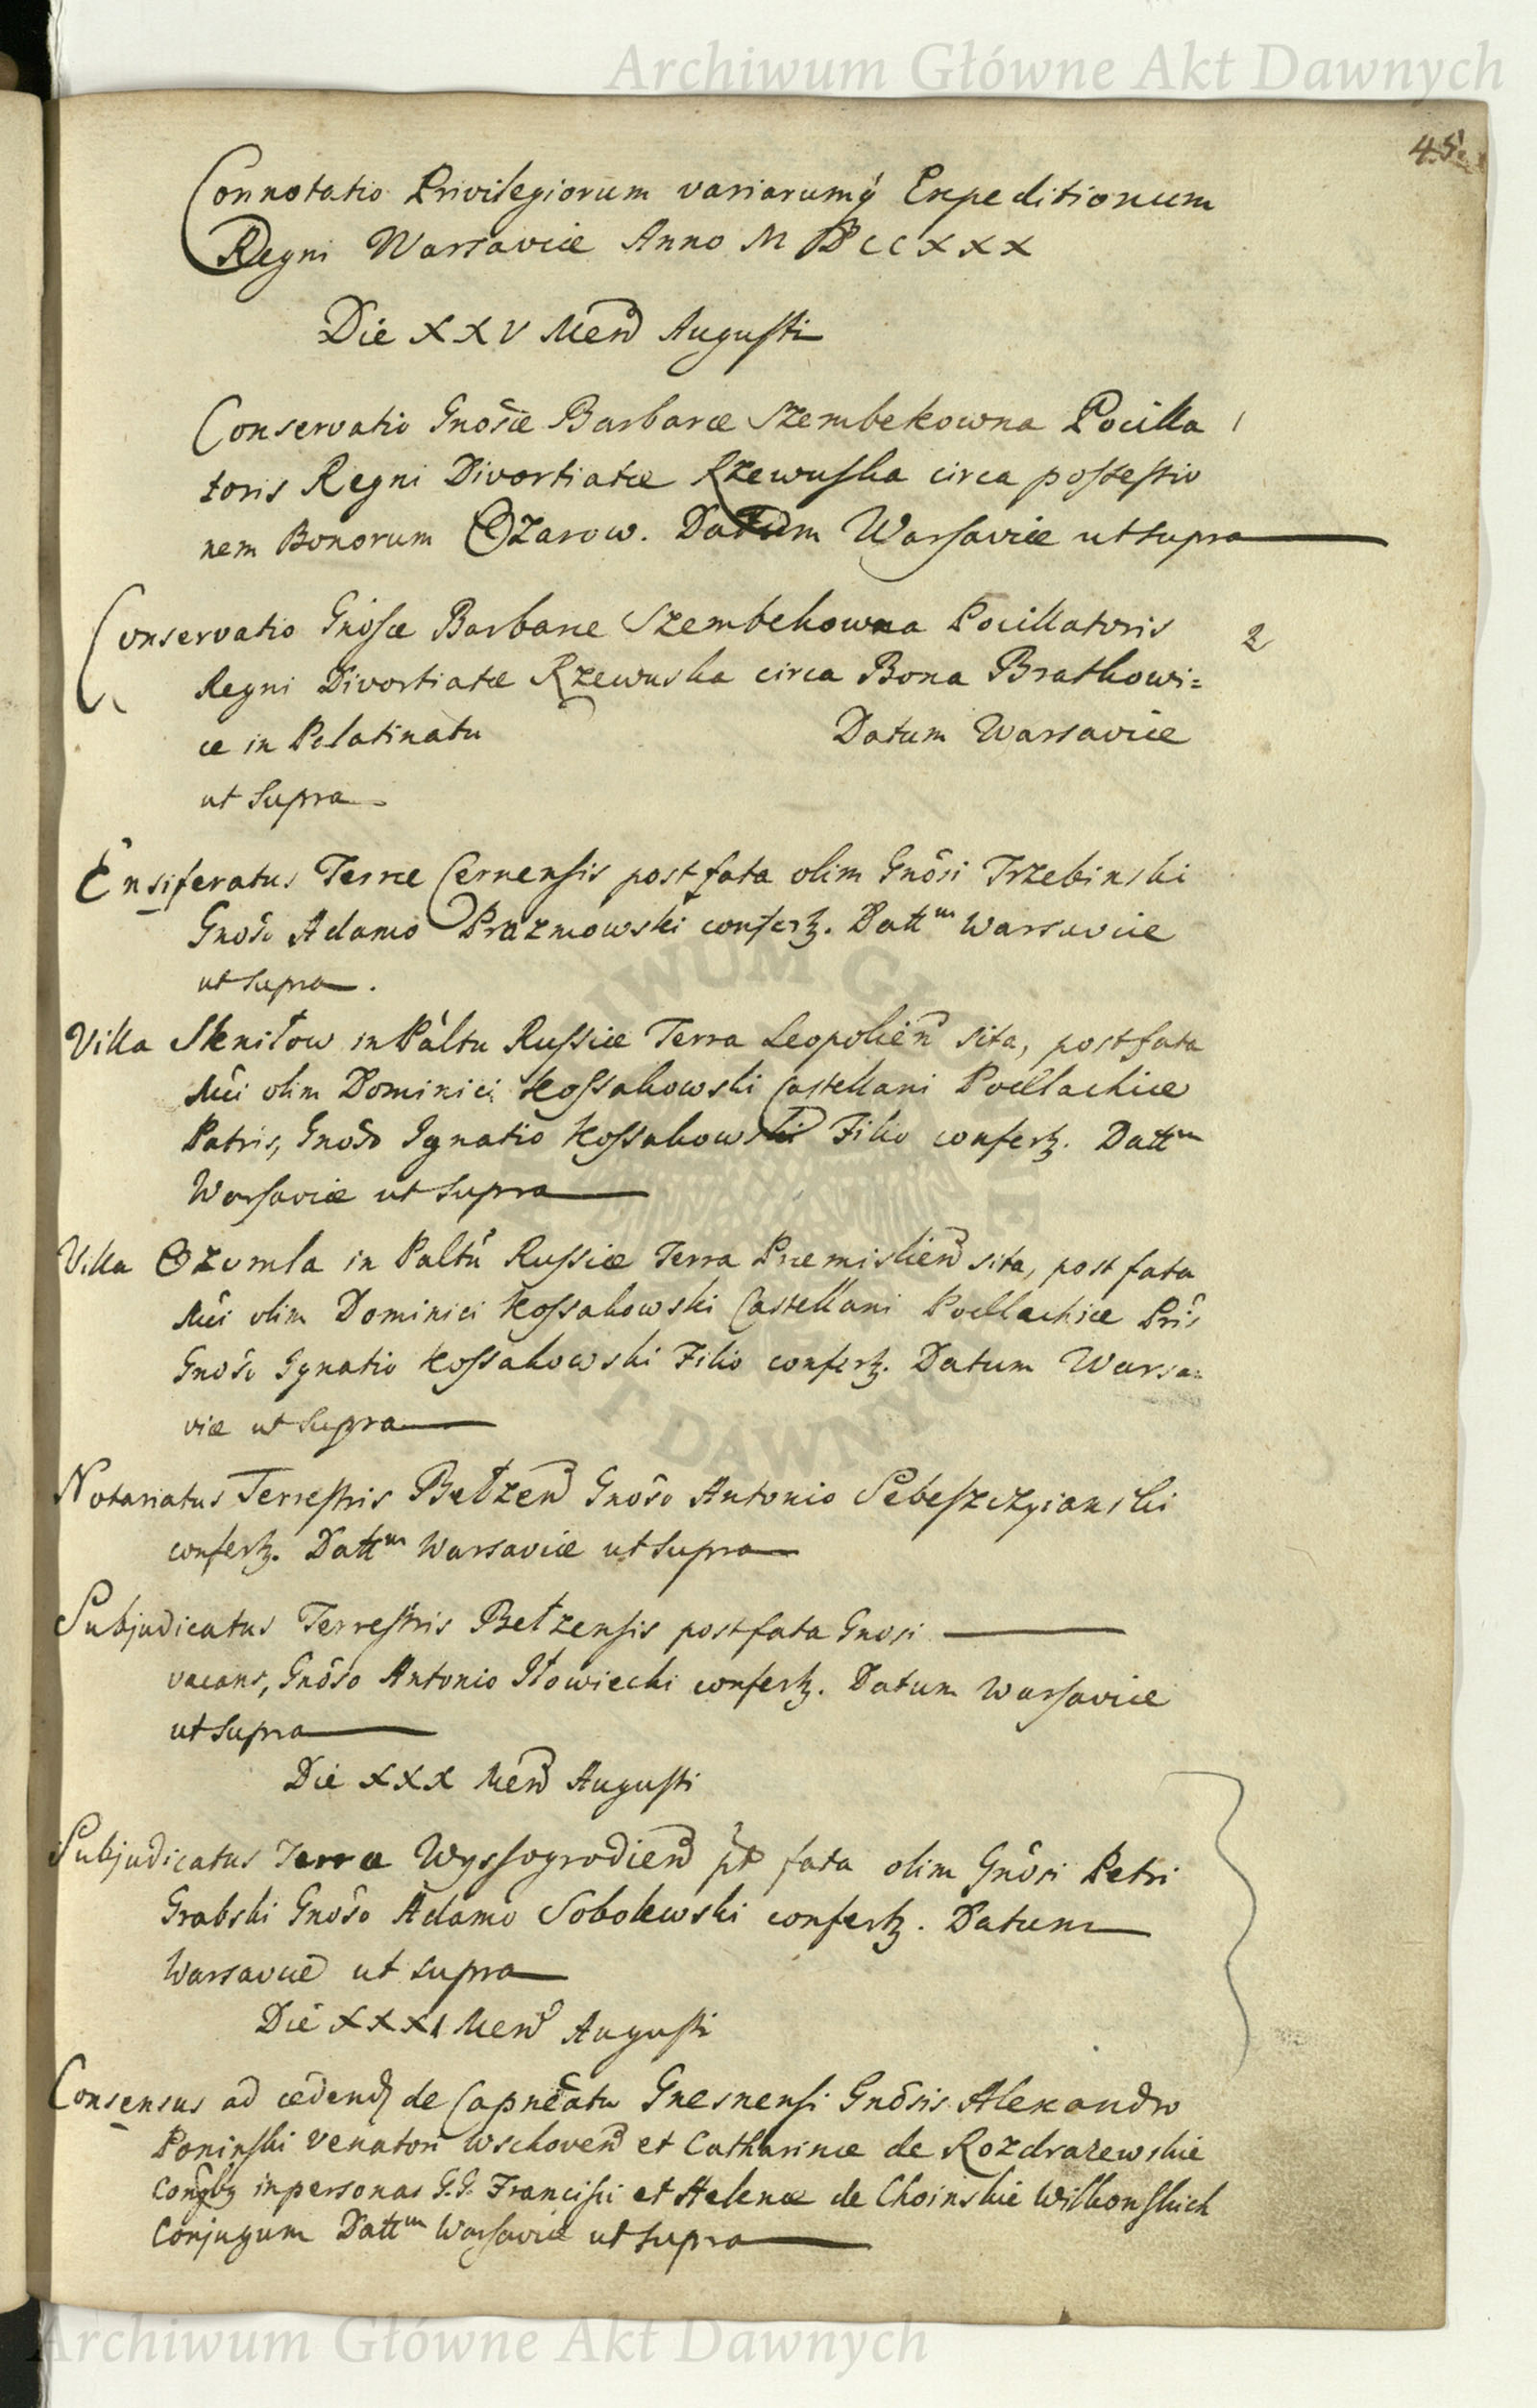 Archiwum Główne Akt Dawnych
45.
Connotatio Privilegiorum variarumq́ Expeditionum
Regni Warsaviæ Anno MDCCXXX
Die XXV Men̄ Augusti
Conservatio Gnosæ Barbaræ Szembekowna Pocilla 1
toris Regni Divortiatæ Rzewuska circa possessio
nem Bonorum Ozarow. Datum Warsaviæ ut supra
Conservatio Gnosæ Barbaræ Szembekowna Pocillatoris 2
Regni Divortiatæ Rzewuska circa Bona Bratkowi=
ce in Palatinatu Datum Warsaviæ
ut supra
Ensiferatus Terræ Cernensis post fata olim Gnôsi Trzebinski
Gnôso Adamo Prazmowski confertz. Datt^m Warsaviæ
ut supra.
Villa Sknilow in Páltu Russiæ Terra Leopolien̄ sita, post fata
Mci olim Dominici Kossakowski Castellani Podlachiæ
Patris, Gnoso Ignatio Kossakowski Filio confertz. Datt^m
Warsaviæ ut supra
Villa Ozomla in Paltú Russiæ Terra Præmislien̄ sita, post fata
Mci olim Dominici Kossakowski Castellani Podlachiæ Pris
Gnoso Ignatio Kossakowski Filio confertz. Datum Warsa=
viæ ut supra
Notariatus Terrestris Bełzen̄ Gnôso Antonio
confertz. Datt^m Warsaviæ ut supra
Subjudicatus Terrestris Bełzensis post fata Gnosi
vacans, Gnôso Antonio Iłowiecki confertz. Datum Warsaviæ
ut supra
Die XXX Men̄ Augusti
Subjudicatus Terræ Wyssogrodien̄ pt fata olim Gnôsi Petri
Grabski Gnôso Adamo Sobolewski confertz. Datum
Warsaviæ ut supra
Die XXXI Men̄ Augusti
Consensus ad cedend de Capneatu Gnesnensi Gnôsis Alexandro
Poninski Venatori Wschoven̄ et Catharinæ de Rozdrazewskie
in personas G.G. Francisci et Helenæ de Choinskie Wilkonskich
Conjugum Datt^m Warsaviæ ut supra
Archiwum Główne Akt Dawnych